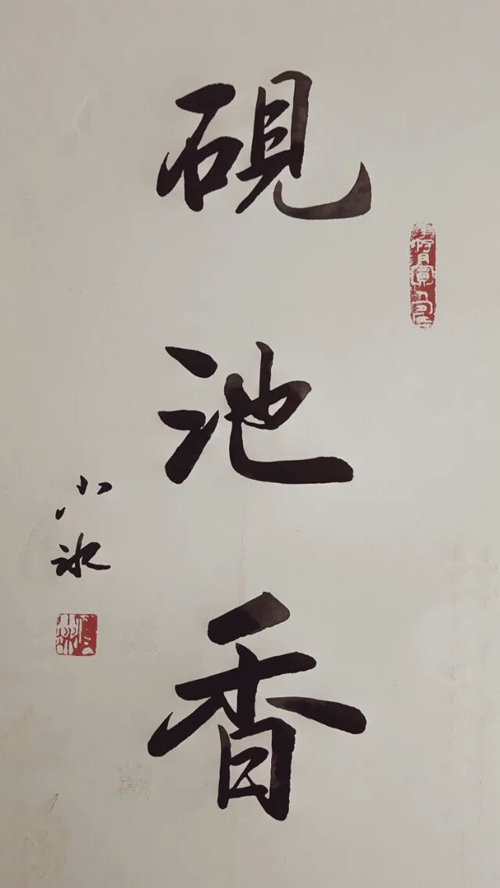 硯池香
小冰